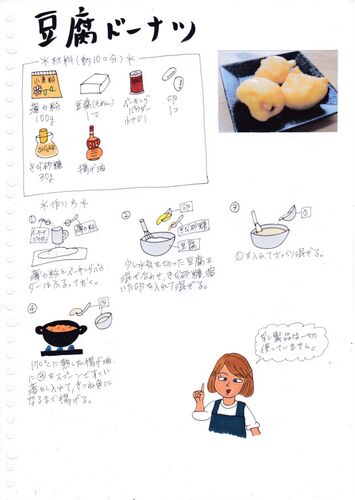 豆腐ドーナツ
*材料(約10コ分)*
小麦粉
薄力粉
100g
豆腐(きぬごし)
1丁
ベーキング
パウダー
小さじ1
卵
1コ
SUGAR
きび砂糖
30g
揚げ油
*作り方*
①
ベーキング
パウダー
薄力粉
薄力粉とベーキングパウ
ダーはふるっておく。
②
卵
きび砂糖
豆腐
少し水気を切った豆腐を
混ぜ合わせ、きび砂糖、溶
いた卵を入れて混ぜる。
③
①
①を入れてさっくり混ぜる。
④
③
170℃に熱した揚げ油
に③をスプーンですくい
落とし入れて、きつね色に
なるまで揚げる。
乳製品は一切
使っていません。